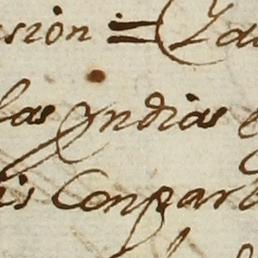 sion =
las Yndias
is Conpar